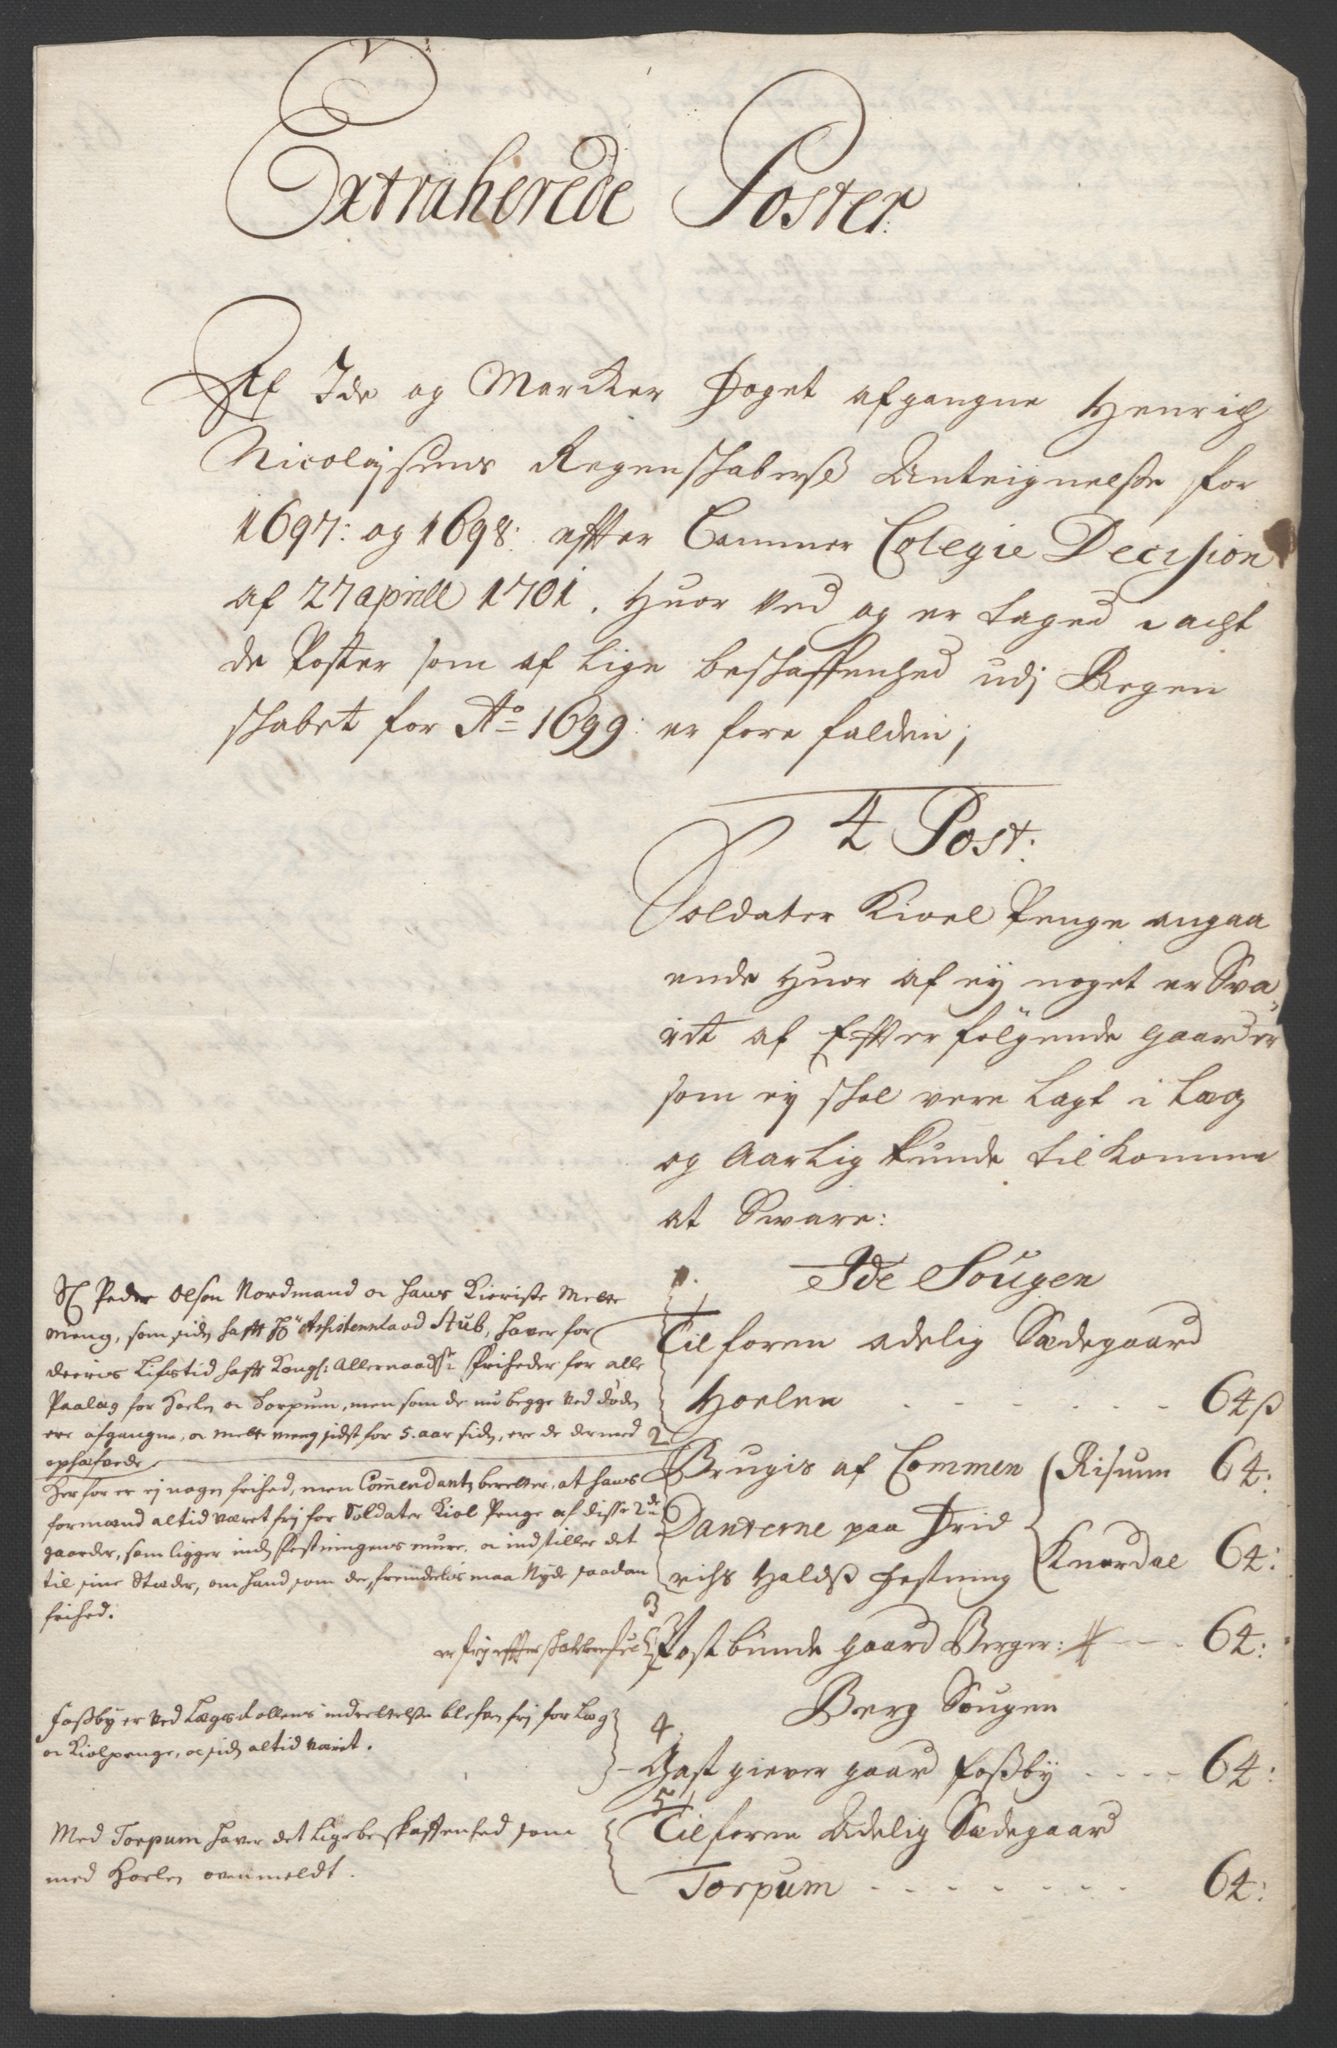 Extraherede Poster
Af Ide og Marcker Foget afgangne Henrich
Nicolajsens Regenskaberß Anteignelse for
1697: og 1698: effter Cammer Colegie Decision
af 27 aprill 1701. Huor ved og er taged i acht
de Poster som af lige beskaffenhed udj Regen
skabet for Ao 1699: er fore falden;
4 Post:
Soldater Kioel Penge angaa
ende Huor af ej noget er Sva,,
rdt af Effterfölgende gaarder
som ej skal vere lagt i Læg
og Aarlig kunde til komme
at Sware:
Ide Sougen
1.
Tilforen adelig Sædegaard
Hoelen - - - - - 64ß
2
Brugis af Commen Risum 64:
Danterne paa Frid
richs Haldß festning Knardal 64:
3
Postbunde gaard Berger: - - 64:
Berg Sougen
4.
Gastgiever gaard Foßby - - - - 64:
5
Tilforen Adelig Sædegaard
Torpum - - - - - - - 64:
Sl Peder Olsen Nordmand oc hans Kieriste Mette
Meng, som siden hafft Hr Assistentzraad Stub, haver for
deeris Lifstid hafft Kongl: Allernaadste Friheder for alle
Paalæg for Hoelen oc Torpum, men som de nu begge ved döden
ere afgangne, oc Mette Meng sidst for 5. aar siden, ere de dermed
ophæfvede
Her for er ej nogen frihed, men Commendanten beretter, at hans
formænd altid været frj for Soldater Kiol Penge af disse 2de
gaarder, som ligger inden Festningens mure, oc indstiller det
til sine Stæder, om hand som de, fremdelis maa Nyde saadan
frihed.
er frj effter
Foßby er ved Lægsrollens indrettelse blefven frj for Læg
oc Kiolpenge, oc siden altid været.
Med Torpum haver det Ligebeskaffenhed som
med Hoelen ovenmeldt.